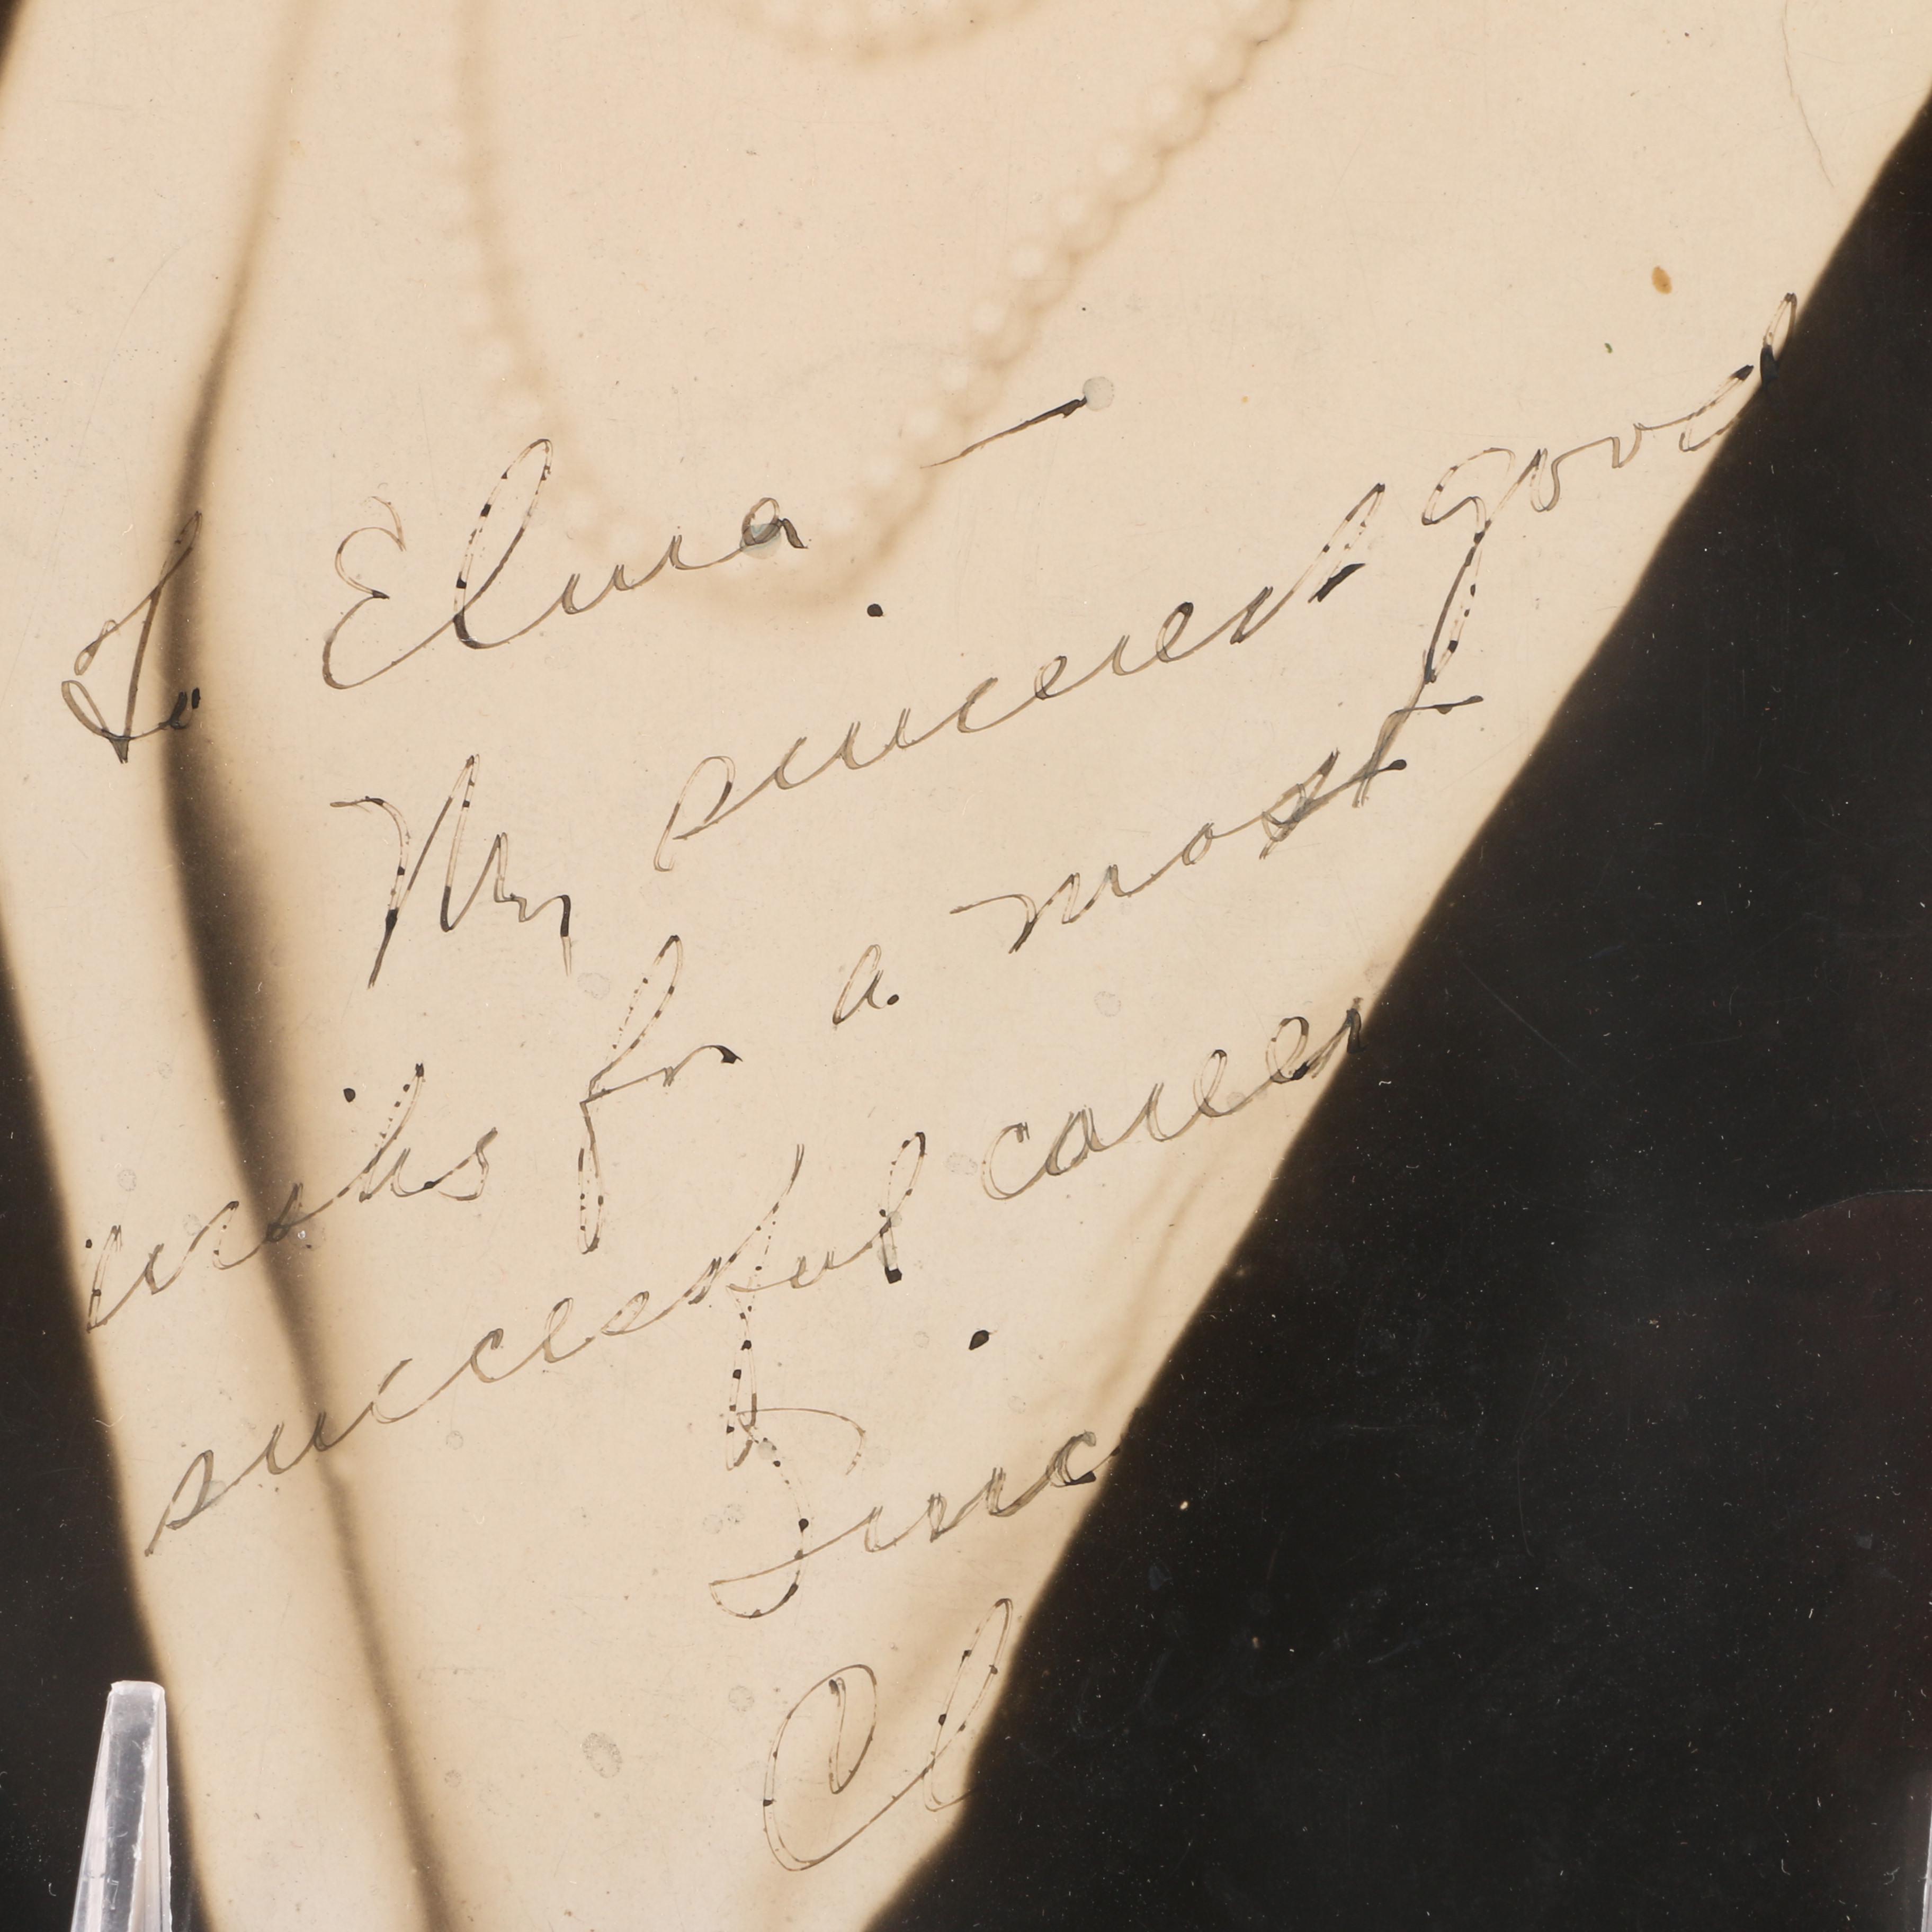 To Elma —
My sincerest good
wishes for a most
successful career
Sinc
Cl